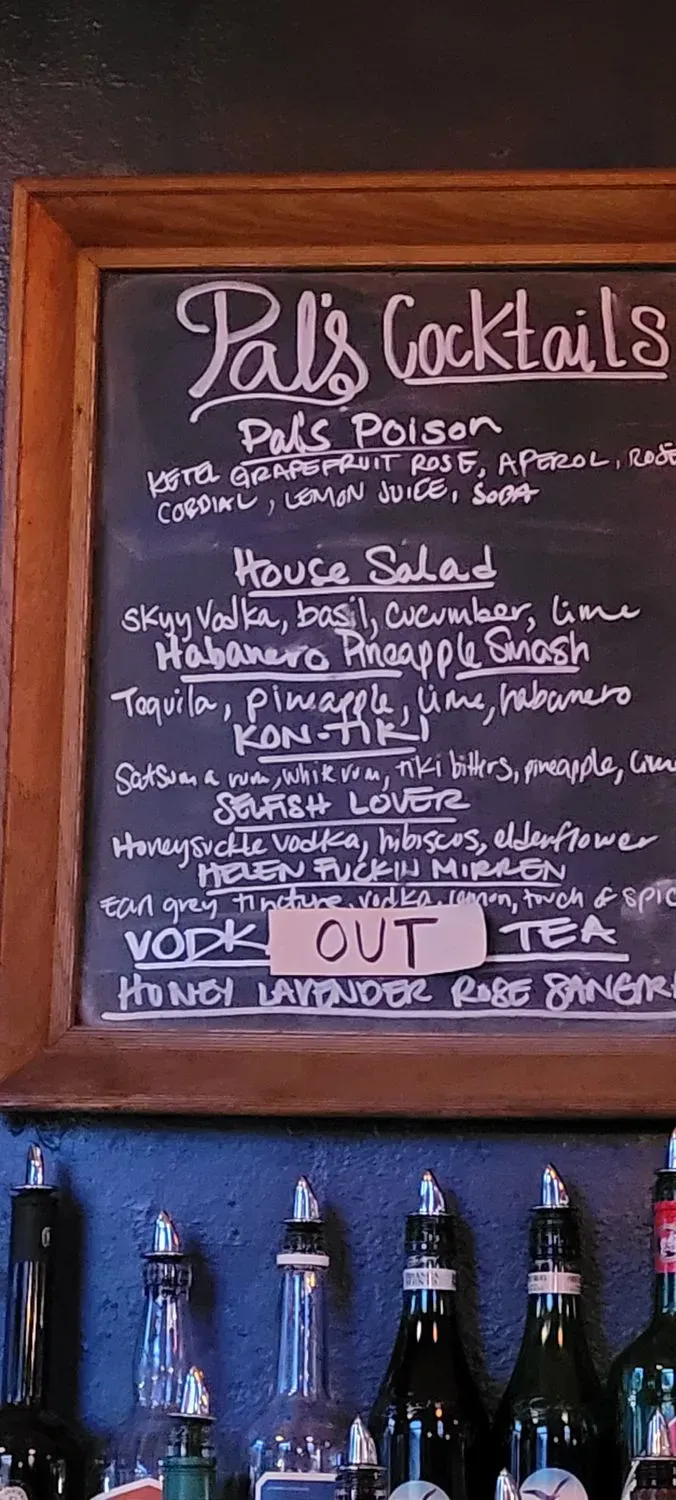 Pal's Cocktails
Pal's Poison
KETEL GRAPEFRUIT ROSE, APEROL, ROSE
CORDIAL, LEMON JUICE, SODA
House Salad
Skyy Vodka, basil, cucumber, lime
Habanero Pineapple Smash
Tequila, pineapple, lime, habanero
KON-TIKI
Satsuma rum, white rum, tiki bitters, pineapple, lime
SELFISH LOVER
Honeysuckle vodka, hibiscos, elderflower
HELEN FUCKIN MIRREN
Earl grey tincture, vodka, lemon, touch of spic
VODK OUT TEA
HONEY LAVENDER ROSE SANGR